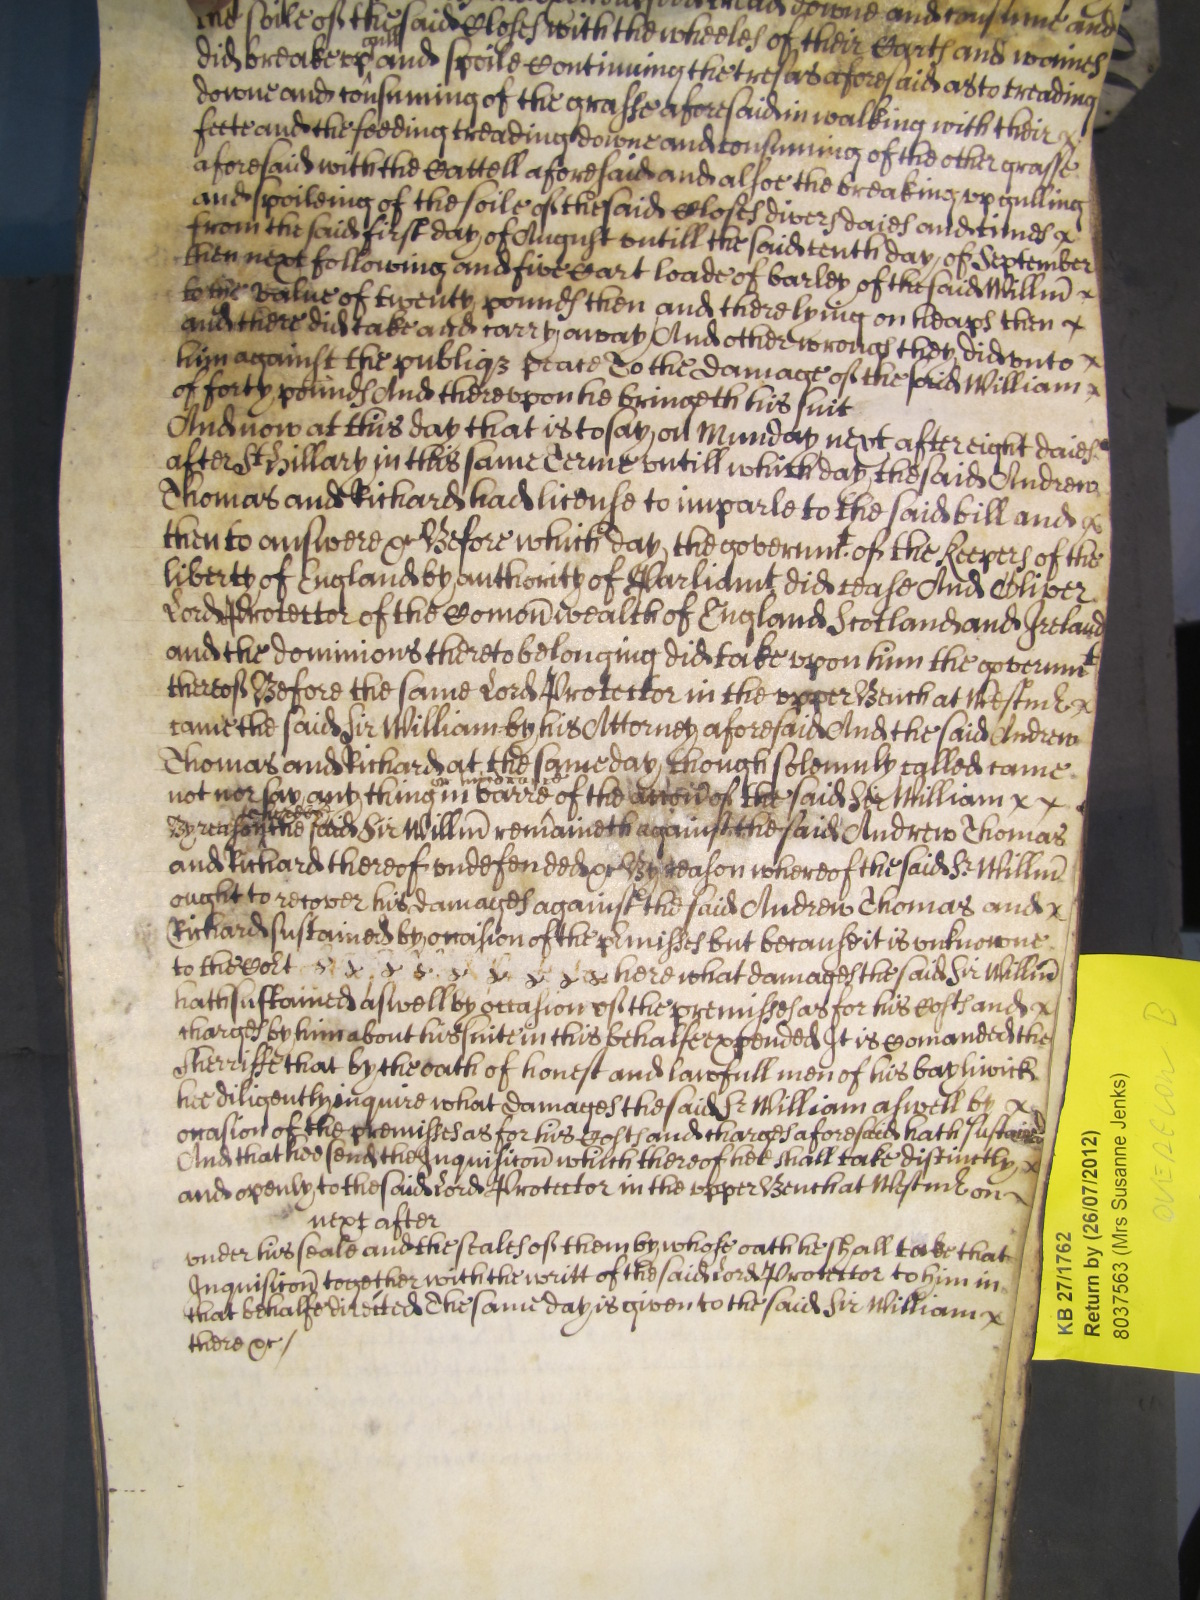 downe and consume and
the soile of the said Closes with the wheeles of their Carts and waines
gull
did breake up and spoile Continuing the tresas aforesaid as to treading
downe and consuming of the grasse aforesaid in walking with their x
feete and the feeding treading downe and consuming of the other grasse
aforesaid with the Cattell aforesaid and alsoe the breaking up gulling
and spoileing of the soile of the said Closes divers daies and times x
from the said first day of August untill the said tenth day of September
then next following and five Cart loade of barley of the said Willm x
to the value of twenty pounds then and there lying on heaps then x
and there did take and carry away And other wrongs they did unto x
him against the publiq3 peace To the damage of the said William x
of forty pounds And thereupon he bringeth his suit
And now at this day that is to say on Munday next after eight daies
after St Hillary in this same Terme untill which day the said Andrew
Thomas and Richard had license to imparle to the said bill and x
then to answere &c Before which day the governmt of the Keepers of the
liberty of England by authority of Parliamt did cease And Oliver
Lord Protector of the Comonwealth of England Scotland and Ireland
and the dominions thereto belonging did take upon him the governmt
thereof Before the same Lord Protector in the upper Bench at Westmr x
came the said Sir William by his Attorney aforesaid And the said Andrew
Thomas and Richard at the same day though solemnly called came
not nor say any thing in barre of the accon of the said Sir William x x
By reason the said Sir Willm remaineth against the said Andrew Thomas
and Richard thereof undefended &c By reason whereof the said Sr Willm
ought to recover his damages against the said Andrew Thomas and x
Richard sustained by occasion of the pmisses but because it is unknowne
to the Cort x x x x x x x x x here what damages the said Sir Willm
hath sustained aswell by occasion of the premisses as for his Costs and x
charges by him about his suite in this behalfe expended It is Comanded the
Sherriffe that by the oath of honest and lawfull men of his bayliwick
hee diligently inquire what damages the said Sr William aswell by x
occasion of the premisses as for his Costs and charges aforesaid hath sustained
And that hee send the Inquisicon which thereof hee shall take distinctly x
and openly to the said Lord Protector in the upper Bench at Westmr on x
next after
under his seale and the seales of them by whose oath he shall take that
Inquisicon together with the writt of the said Lord Protector to him in
that behalfe directed The same day is given to the said Sir William x
there &c /
KB 27/1762
Return by (26/07/2012)
8037563 (Mrs Susanne Jenks)